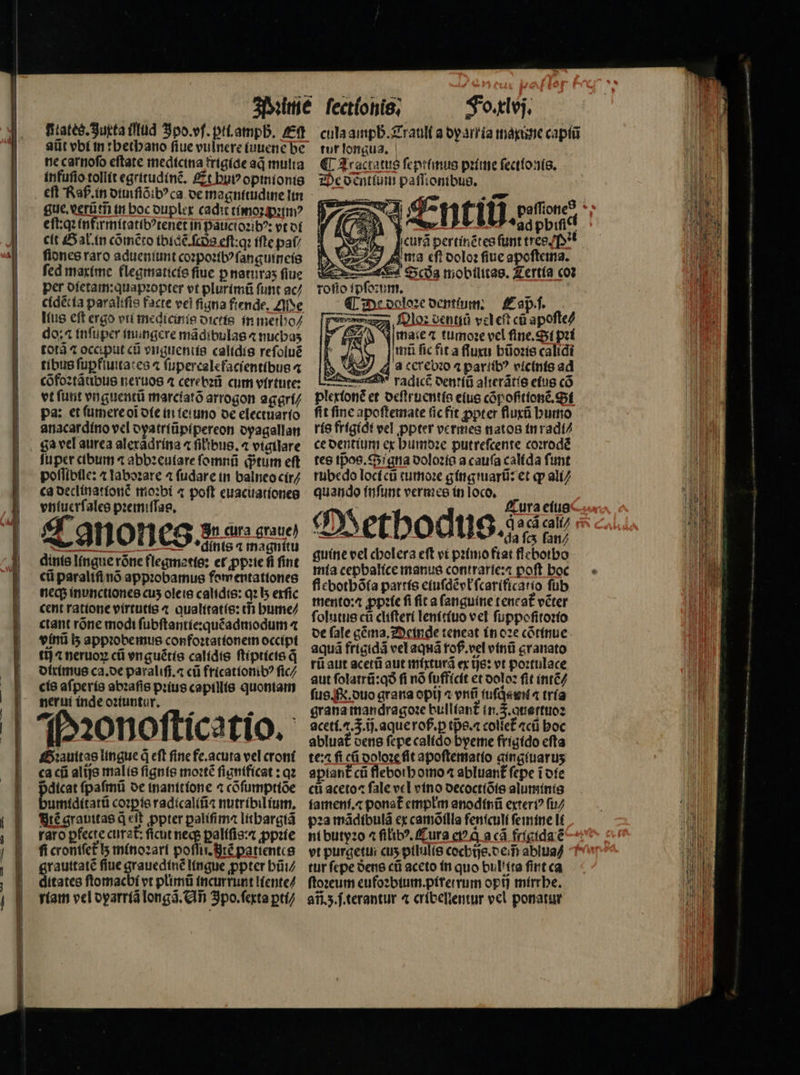 Prime
ſtates. Juxta illud Ipo.vſ. pti. amph. Eſt
aūt vbi in thethano ſiue vulnere iuuene be
ne carnoſo eſtate medicina frigide aq̄ multa
infuſio tollit egritudinē. Et huiꝰ opinionis
eſt Raſ. in diuiſiōibꝰ ca de magnitudine lin
gue. verūtn̄ in hoc duplex cadit timoꝛ. pꝛimꝰ
eſt: qꝛ infirmitatibꝰ tenet in paucioꝛibꝰ: vt di
cit Gal. in cōmēto ibidē. ſcd̄s eſt: qꝛ iſte paſ⸗
ſiones raro adueniunt coꝛpoꝛibꝰ ſanguineis
ſed maxime flegmaticis ſiue ꝑ naturaꝫ ſiue
per dietam: quapꝛopter vt plurimū ſunt ac⸗
cidētia paraliſis facte vel ſigna fiende. Me
lius eſt ergo vti medicinis dictis in metho⸗
do: ⁊ inſuper inungere mādibulas ⁊ nuchaꝫ
totā ⁊ occiput cū vnguentis calidis reſoluē
tibus ſuꝑfluitates ⁊ ſupercalefacientibus ⁊
cōfoꝛtātibus neruos ⁊ cerebꝛū cum virtute:
vt ſunt vnguentū marciatō arrogon aggri⸗
pa: et ſumere oī die in ieiuno de electuario
anacardino vel dyatriūpipereon dyagallan
ga vel aurea alexādrina ⁊ ſilibus. ⁊ vigilare
ſuper cibum ⁊ abbꝛeuiare ſomnū q̄ꝫtum eſt
poſſibile: ⁊ laboꝛare ⁊ ſudare in balneo cir⸗
ca declinationē moꝛbi ⁊ poſt euacuationes
vniuerſales pꝛemiſſas.
Canones. In cura graue⸗
dinis ⁊ magnitu
dinis lingue rōne flegmatis: et ꝓpꝛie ſi ſint
cū paraliſi nō appꝛobamus fomentationes
necꝫ inunctiones cuꝫ oleis calidis: qꝛ lꝫ exſic
cent ratione virtutis ⁊ qualitatis: tn̄ hume⸗
ctant rōne modi ſubſtantie: quēadmodum ⁊
vinū lꝫ appꝛobemus confoꝛtationem occipi
tij ⁊ neruoꝝ cū vnguētis calidis ſtipticis q̄
diximus ca. de paraliſi. ⁊ cū fricationibꝰ ſic⸗
cis aſperis abꝛaſis pꝛius capillis quoniam
nerui inde oꝛiuntur.
Pꝛonoſticatio.
Gꝛauitas lingue q̄ eſt ſine fe. acuta vel croni
ca cū alijs malis ſignis moꝛtē ſignificat: qꝛ
p̄dicat ſpaſmū de inanitione ⁊ cōſumptiōe
humiditatū coꝛpis radicaliū ⁊ nutribilium.
Itē grauitas q̄ eſt ꝓpter ꝑaliſimꝫ lithargiā
raro ꝑfecte curat̄: ſicut necꝫ paliſis: ⁊ ꝓpꝛie
ſi croniſet̄ lꝫ minoꝛari poſſit. Itē patientes
grauitatē ſiue grauedinē lingue ꝓpter hūi⸗
ditates ſtomachi vt plimū incurrunt liente⸗
riam vel dyarriā longā. Un̄ Ipo. ſexta pti⸗
ſectionis,
Fo.xlvj.
cula amph. Trauli a dyarria maxime capiū
tur longua.
¶ Tractatus ſeptimus pꝛime ſectionis.
De dentium paſſionibus.
Entiū. paſſiones
ad phiſicū
curā pertinētes ſunt tres. Pꝛi
ma eſt doloꝛ ſiue apoſtema.
Scd̄a mobilitas. Tertia coꝛ
roſio ipſoꝛum.
¶ De doloꝛe dentium. Cap. ſ.
Doloꝛ dentiū vel eſt cū apoſte⸗
mate ⁊ tumoꝛe vel ſine. Si pꝛi
mū ſic fit a fluxu hūoꝛis calidi
a cerebꝛo ⁊ partibꝰ vicinis ad
radicē dentiū alterātis eius cō
plexionē et deſtruentis eius cōpoſitionē. Si
fit ſine apoſtemate ſic fit ꝓpter fluxū humo
ris frigidi vel ꝓpter vermes natos in radi⸗
ce dentium ex humoꝛe putreſcente coꝛrodē
tes ip̄os. Signa doloꝛis a cauſa calida ſunt
rubedo loci cū tumoꝛe gingiuarū: et ꝙ ali⸗
quando inſunt vermes in loco.
Methodus. Cura eius
q̄ a cā cali⸗
da ſcꝫ ſan⸗
guine vel cholera eſt vt pꝛimo fiat flebotho
mia cephalice manus contrarie: ⁊ poſt hoc
flebothōia partis eiuſdē vl̄ ſcarificatio ſub
mento: ⁊ ꝓpꝛie ſi ſit a ſanguine teneat̄ vēter
ſolutus cū cliſteri lenitiuo vel ſuppoſitoꝛio
de ſale gēma. Deinde teneat in oꝛe cōtinue
aquā frigidā vel aquā roſ. vel vinū granato
rū aut acetū aut mixturā ex ijs: vt poꝛtulace
aut ſolatrū: qd̄ ſi nō ſufficit et doloꝛ ſit intē⸗
ſus. ℞. duo grana opij ⁊ vnū iuſq̄ami ⁊ tria
grana mandragoꝛe bulliant̄ in .ʒ. quattuoꝛ
aceti. ⁊ .ʒ.ij. aque roſ. ꝑ tp̄s. ⁊ colet̄ ⁊ cū hoc
abluat̄ dens ſepe calido hyeme frigido eſta
te: ⁊ ſi cū doloꝛe ſit apoſtematio gingiuaruꝫ
apiant̄ cū flebothomo ⁊ abluant̄ ſepe ī die
cū aceto ⁊ ſale vel vino decoctiōis aluminis
iameni. ⁊ ponat̄ emplm̄ anodinū exteriꝰ ſu⸗
pꝛa mādibulā ex camōilla feniculi ſemine li
ni butyꝛo ⁊ ſilibꝰ. Cura eiꝰ q̄ a cā frigida ē
vt purgetur cuꝫ pilulis cochijs. dein̄ ablua⸗
tur ſepe dens cū aceto in quo bullita ſint ca
ſtoꝛeum eufoꝛbium. piretrum opij mirrhe.
an̄. ʒ.ſ. terantur ⁊ cribellentur vel ponatur